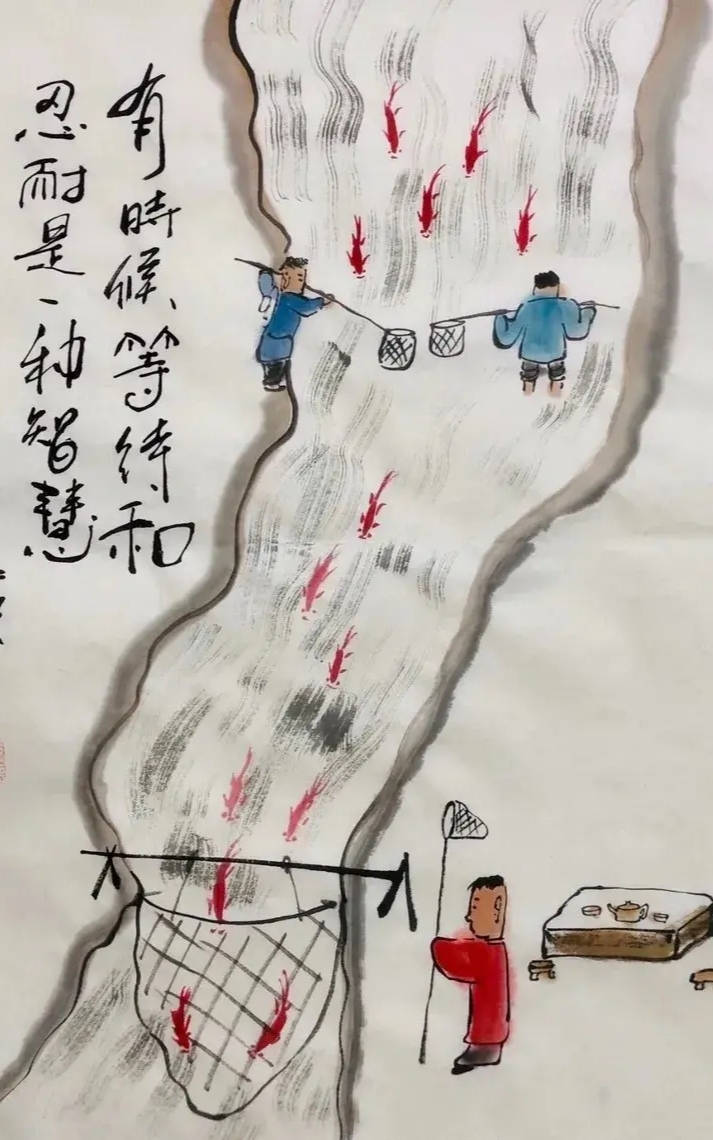 有時候、等待和
忍耐是一种智慧